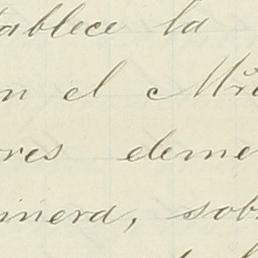 tablece la
n el Mr
res deme
inera, sob